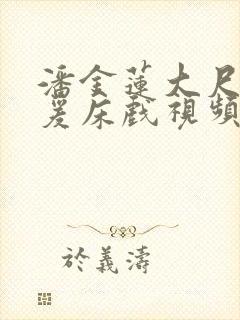 潘金蓮大尺
爰床戲視頻
於義濤